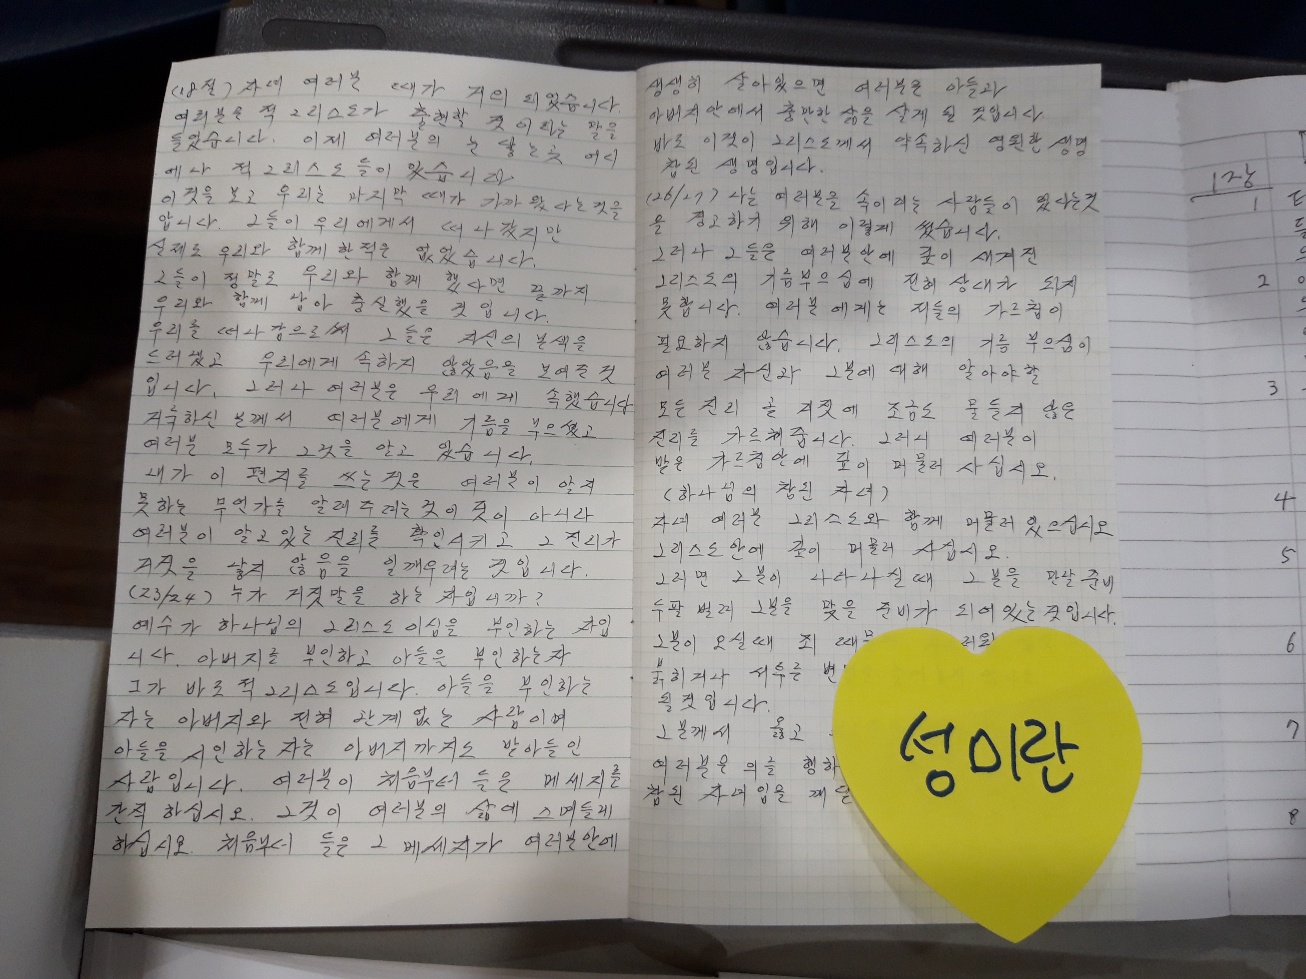 (18절) 자녀 여러분 때가 거의 되었습니다.
여러분은 적 그리스도가 출현할 것이라는 말을
들었습니다. 이제 여러분의 눈 닿는곳 어디
에나 적그리스도들이 있습니다
이것을 보고 우리는 마지막 때가 가까왔다는것을
압니다. 그들이 우리에게서 떠나갔지만
실제로 우리와 함께한적은 없었습니다.
그들이 정말로 우리와 함께 했다면 끝까지
우리와 함께 남아 충실했을 것입니다.
우리를 떠나감으로써 그들은 자신의 본색을
드러냈고 우리에게 속하지 않았음을 보여준것
입니다. 그러나 여러분은 우리에게 속했습니다
거룩하신 분께서 여러분에게 기름을 부으셨고
여러분 모두가 그것을 알고 있습니다.
내가 이 편지를 쓰는것은 여러분이 알지
못하는 무언가를 알려주려는것이 아니라
여러분이 알고있는 진리를 확인시키고 그 진리가
거짓을 낳지 않음을 일깨우려는 것입니다.
(23/24) 누가 거짓말을 하는 자입니까?
예수가 하나님의 그리스도이심을 부인하는 자입
니다. 아버지를 부인하고 아들을 부인하는자
그가 바로 적그리스도입니다. 아들을 부인하는
자는 아버지와 전혀 관계없는 사람이며
아들을 시인하는 자는 아버지까지도 받아들인
사람입니다 여러분이 처음부터 들은 메세지를
간직 하십시오. 그것이 여러분의 삶에 스며들게
하십시오. 처음부터 들은 그 메세지가 여러분안에
생생히 살아있으면 여러분은 아들과
아버지안에서 충만한 삶을 살게 될 것입니다
바로 이것이 그리스도께서 약속하신 영원한 생명
참된 생명입니다.
(26/27) 나는 여러분을 속이려는 사람들이 있다는것
을 경고하기 위해 이렇게 썼습니다.
그러나 그들은 여러분안에 깊이 새겨진
그리스도의 기름부으심에 전혀 상대가 되지
못합니다. 여러분에게는 저들의 가르침이
필요하지 않습니다. 그리스도의 기름 부으심이
여러분 자신과 그분에 대해 알아야할
모든 진리 곧 거짓에 조금도 물들지 않은
진리를 가르쳐줍니다. 그러니 여러분이
받은 가르침안에 깊이 머물러 사십시오.
(하나님의 참된 자녀)
자녀 여러분 그리스도와 함께 머물러 있으십시오
그리스도안에 깊이 머물러 사십시오.
그러면 그분이 나타나실때 그분을 만날 준비
두팔 벌려 그분을 맞을 준비가 되어있는것입니다.
그분이 오실때 죄 때문
붉히거나 서투른 변
될것입니다.
그분께서 옳고
여러분은 의를 행하
참된 자녀임을 깨달
성미란
12장
1
2
3
4
5
6
7
8